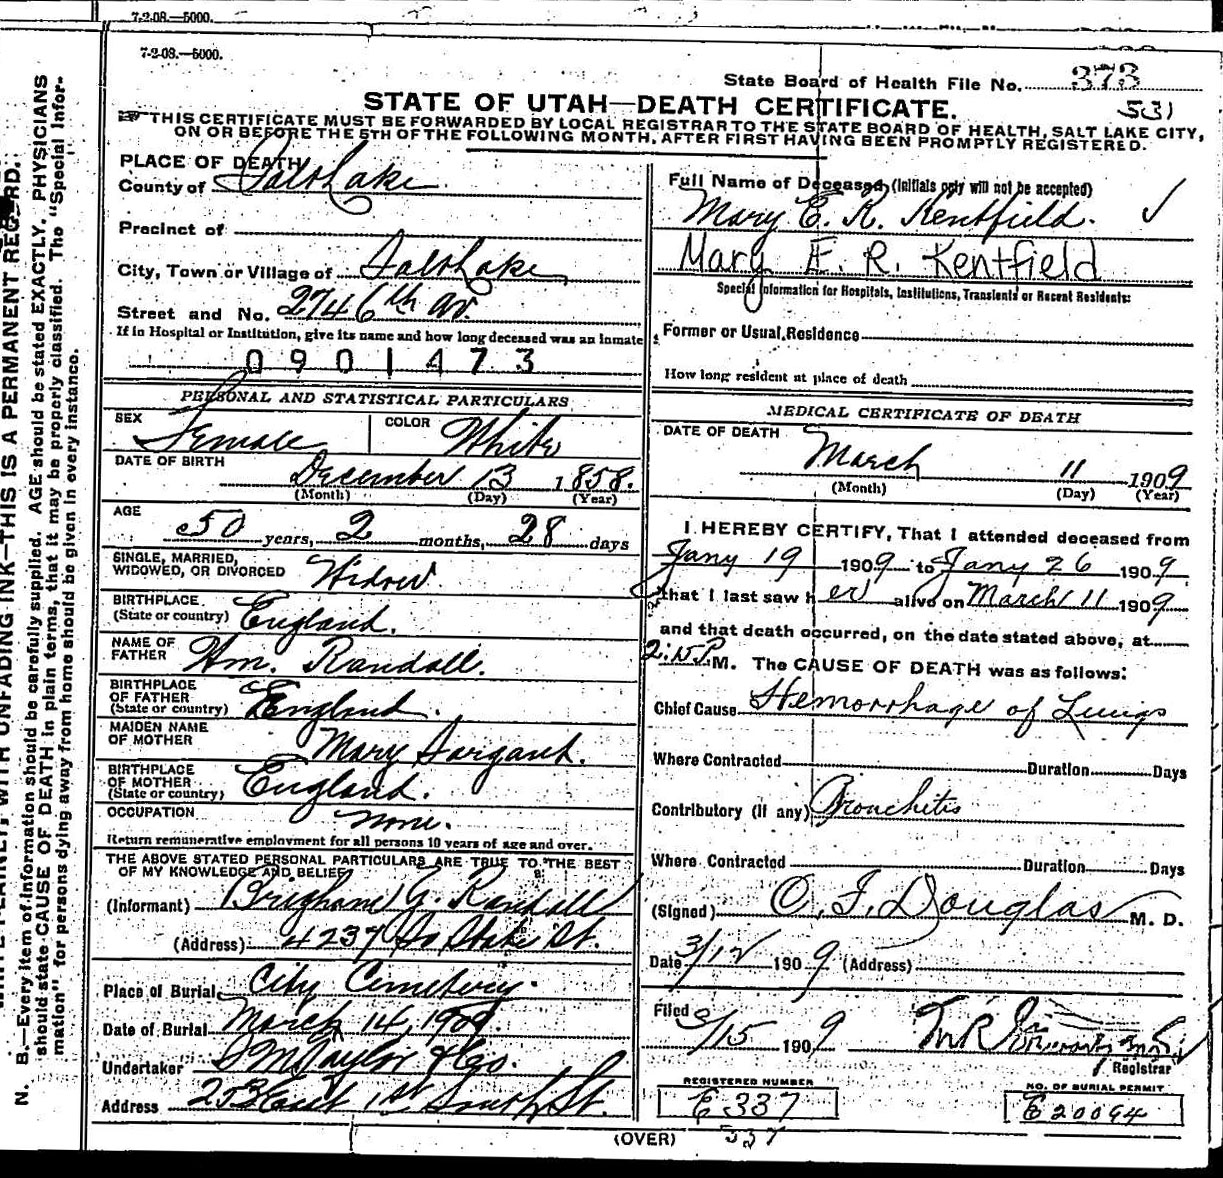 7-2-08.—5000.
7-2-08.—5000.
State Board of Health File No. 373
STATE OF UTAH—DEATH CERTIFICATE.
531
THIS CERTIFICATE MUST BE FORWARDED BY LOCAL REGISTRAR TO THE STATE BOARD OF HEALTH, SALT LAKE CITY,
ON OR BEFORE THE 5TH OF THE FOLLOWING MONTH, AFTER FIRST HAVING BEEN PROMPTLY REGISTERED.
PLACE OF DEATH
County of Salt Lake
Precinct of
City, Town or Village of Salt Lake
Street and No. 274 6th Av.
If in Hospital or Institution, give its name and how long deceased was an inmate
0901473
PERSONAL AND STATISTICAL PARTICULARS
SEX Female COLOR White
DATE OF BIRTH December 13 1858.
(Month) (Day) (Year)
AGE 50 years, 2 months, 28 days
SINGLE, MARRIED,
WIDOWED, OR DIVORCED Widow
BIRTHPLACE
(State or country) England.
NAME OF
FATHER Wm. Randall.
BIRTHPLACE
OF FATHER
(State or country) England.
MAIDEN NAME
OF MOTHER Mary Sargant.
BIRTHPLACE
OF MOTHER
(State or country) England.
OCCUPATION none.
Return remunerative employment for all persons 10 years of age and over.
THE ABOVE STATED PERSONAL PARTICULARS ARE TRUE TO THE BEST
OF MY KNOWLEDGE AND BELIEF
(Informant) Brigham G. Randall
(Address) 4237 So State St.
Place of Burial City Cemetery.
Date of Burial March 14, 1909.
Undertaker S M Taylor & Co.
Address 253 East 1st South St.
Full Name of Deceased (Initials only will not be accepted)
Mary E. R. Kentfield. ✓
Mary E. R. Kentfield
Special Information for Hospitals, Institutions, Transients or Recent Residents:
Former or Usual Residence
How long resident at place of death
MEDICAL CERTIFICATE OF DEATH
DATE OF DEATH
March 11 1909
(Month) (Day) (Year)
I HEREBY CERTIFY, That I attended deceased from
Jany 19 1909 to Jany 26 1909
that I last saw her alive on March 11 1909
and that death occurred, on the date stated above, at
M. The CAUSE OF DEATH was as follows:
Chief Cause Hemorrhage of Lungs
Where Contracted Duration Days
Contributory (if any) Bronchitis
Where Contracted Duration Days
(Signed) O. J. Douglas M. D.
Date 3/12 1909 (Address)
Filed 3/15 1909
Registrar
REGISTERED NUMBER
E 337
NO. OF BURIAL PERMIT
E 20094
(OVER) 337
N. B.—Every item of information should be carefully supplied. AGE should be stated EXACTLY. PHYSICIANS
should state CAUSE OF DEATH in plain terms, that it may be properly classified. The "Special Infor-
mation" for persons dying away from home should be given in every instance.
WITH UNFADING INK—THIS IS A PERMANENT RECORD.